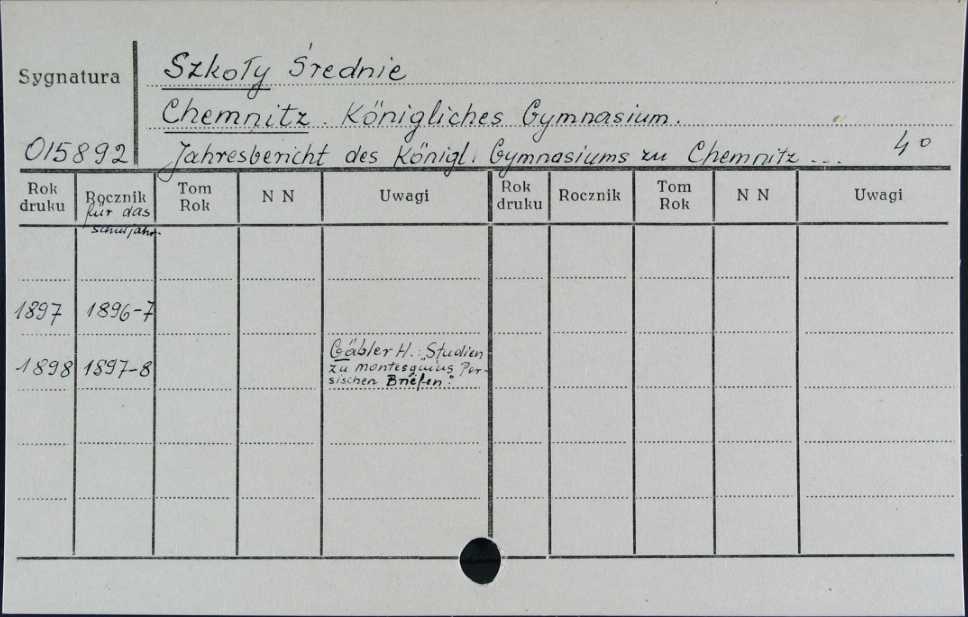 Szkoły Średnie
Sygnatura
Chemnitz. Königliches Gymnasium.
015892 Jahresbericht des Königl. Gymnasiums zu Chemnitz ... 4°
Rok druku Rocznik Tom Rok N N Uwagi Rok druku Rocznik Tom Rok N N Uwagi
für das
Schuljahr.
1897 1896-7
1898 1897-8 Gäbler H.: "Studien
zu Montesquius Per-
sischen Briefen."